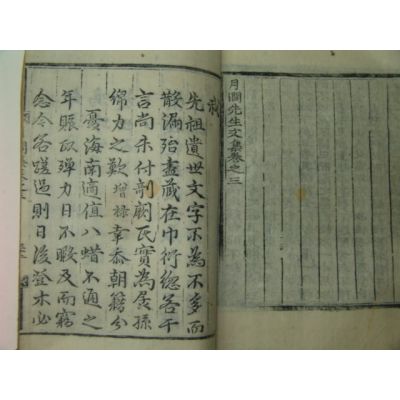 月澗先生文集卷之三
跋
先祖遺世文字不爲不多而
散漏殆盡藏在巾衍總若干
言尚未付剞劂氏實爲孱孫
綿力之歎增祿幸忝朝籍分
憂海南適值八蜡不通之
年賑政殫力日不暇及而竊
念今若蹉過則日後登木必